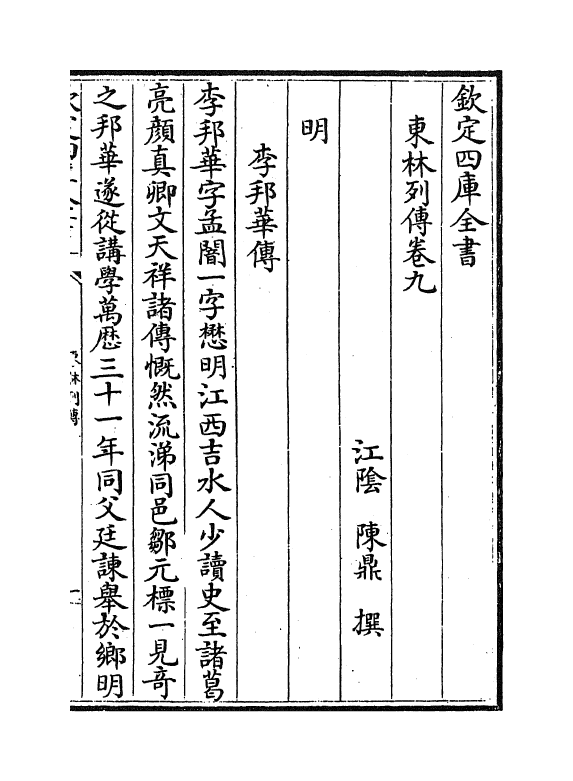 欽定四庫全書
東林列傳卷九
江陰 陳鼎 撰
明
李邦華傳
李邦華字孟闇一字懋明江西吉水人少讀史至諸葛
亮顏真卿文天祥諸傳慨然流涕同邑鄒元標一見竒
之邦華遂從講學萬歴三十一年同父廷諫舉於鄉明
東林列傳